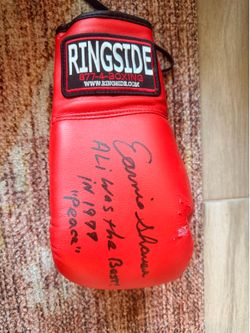 RINGSIDE
877-4-BOXING
WWW.RINGSIDE.COM
Earnie Shavers
Ali was the Best
in 1977
"Peace"